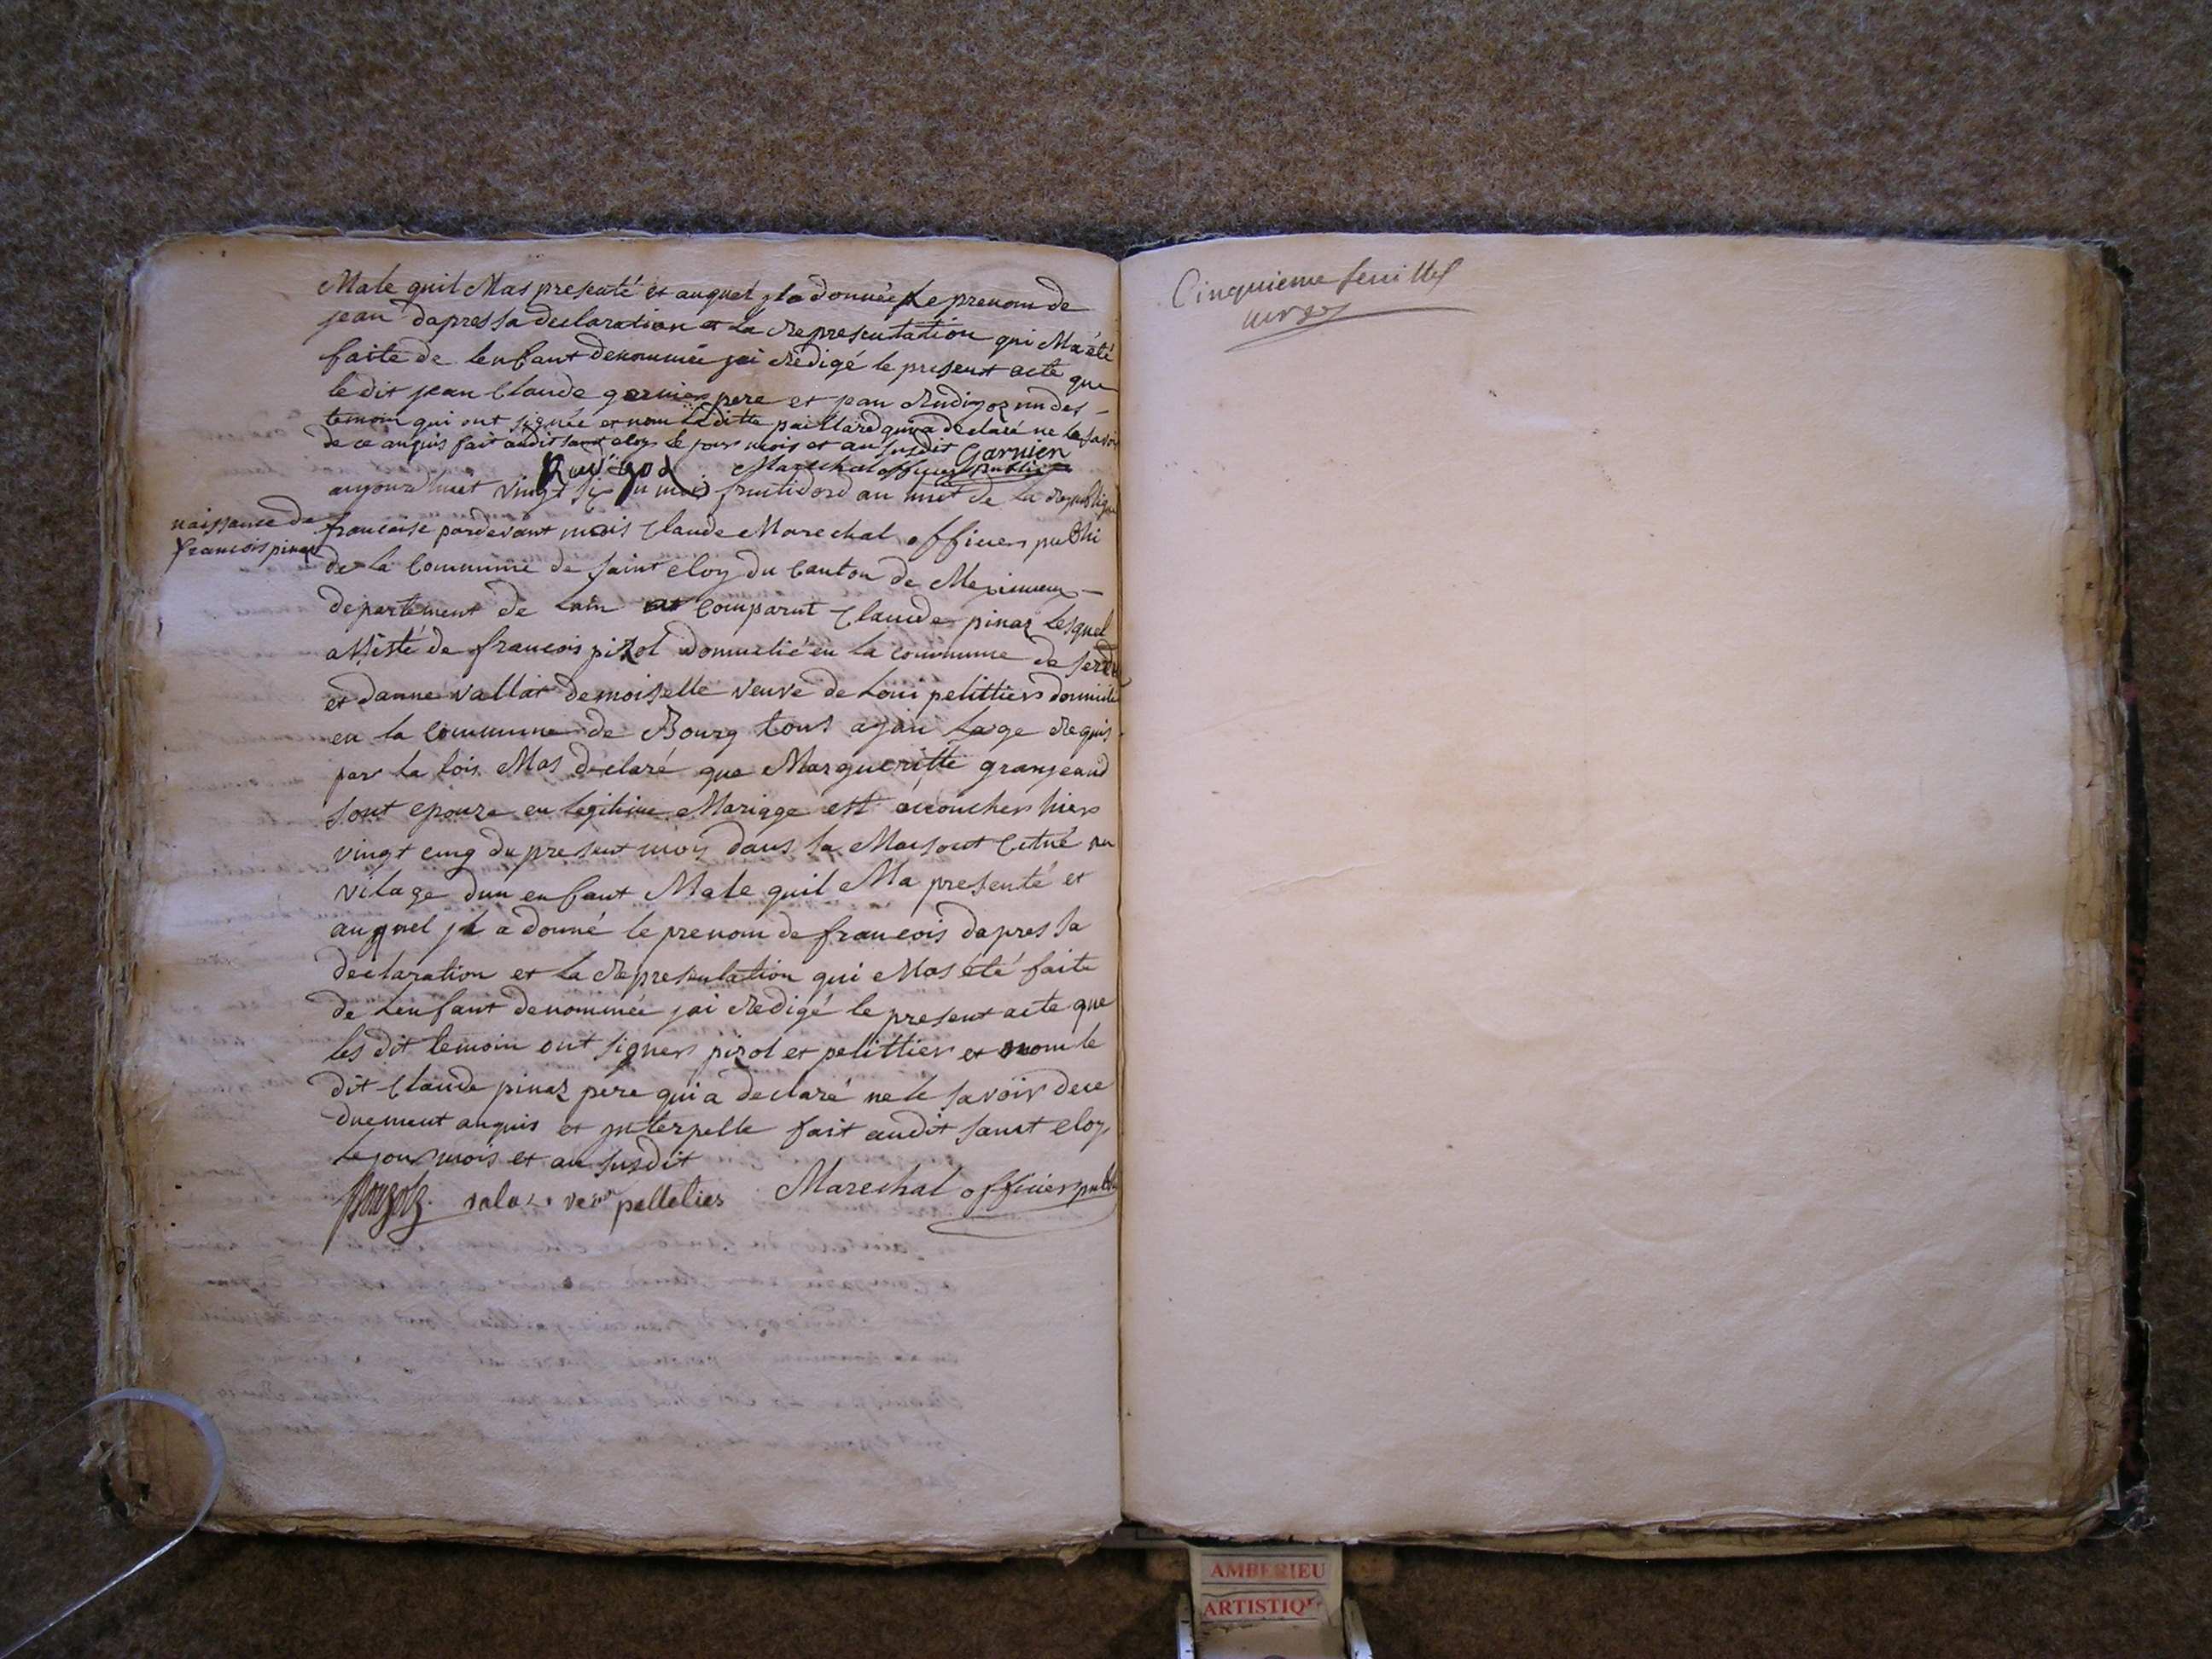 Male quil Mas presenté et auquel jla donnée le prenom de
jean dapres sa declaration et la Representation qui Ma été
faite de lenfant denommée jai Rédigé le present acte que
le dit jean Claude garnier pere et jean Rudigoz un des
temoin qui ont signée et nom la ditte paillared qui a declaré ne le savoir
de ce anquis fait audit saint eloy le jour mois et an susdit Garnien
Rudigod Marechal officier public
aujourdhuet vingt six du mois fruitidord an huet de la Republique
naissance de
francois pinaz
francaise pardevant mois Claude Marechal officier publi
de la Commune de saint eloy du Canton de Meximieux
departement de Lain est Comparut Claude pinaz Lesquel
assisté de francois pizol domicilié en la commune de
et danne vallat demoiselle veuve de Loui pelittier domicilié
en la Commune de Bourg tous ajan Lage Requis
par la lois Mas declaré que Margueritte granjeand
sont epouze en legitime Mariage est accoucher hier
vingt cinq du present mois dans sa Maisont Citué au
vilage dun enfant Male quil Ma presenté et
auquel jl a donné le prenom de francois dapres sa
declaration et la Representation qui Mas été faite
de Lenfant denommée jai Redigé le present acte que
les dit temoin ont signer pizol et pelittier et nom le
dit Claude pinaz pere qui a declaré ne le savoir dece
duement anquis et jnterpelle fait audit saint eloy
le jour mois et an susdit
pellelies Marechal officier publi
Cinquieme feuillet
AMBERIEU
ARTISTIQ